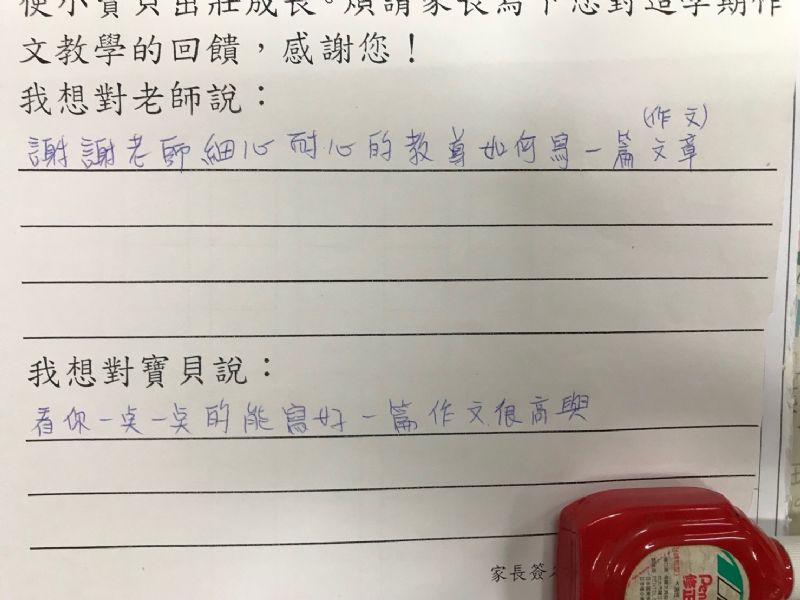 使小寶貝茁壯成長。煩請家長寫下您對這學期作
文教學的回饋，感謝您！
我想對老師說：
(作文)
謝謝老師細心耐心的教導如何寫一篇文章
我想對寶貝說：
看你一点一点的能寫好一篇作文很高興
家長簽
Pen
修正